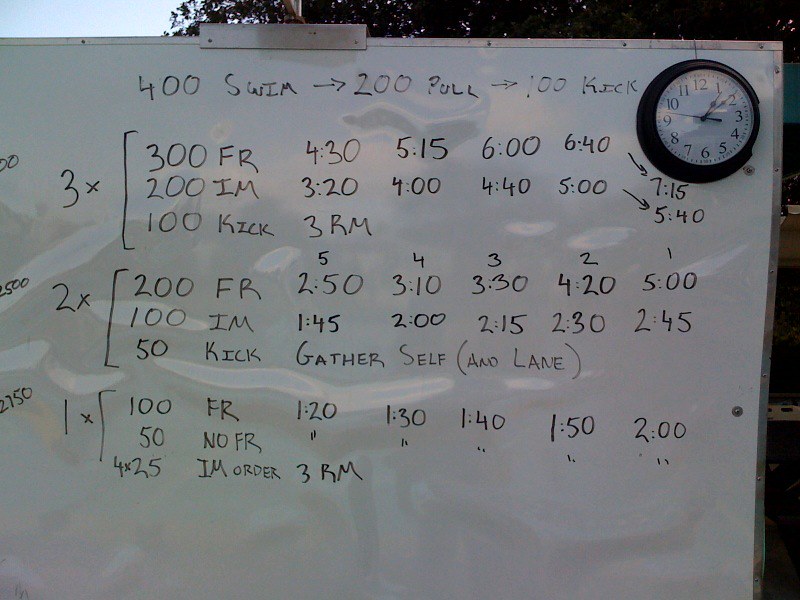 400 SWIM → 200 PULL → 100 KICK
3x [ 300 FR 4:30 5:15 6:00 6:40 7:15
200 IM 3:20 4:00 4:40 5:00 5:40
100 KICK 3 RM
5 4 3 2 1
2500
2x [ 200 FR 2:50 3:10 3:30 4:20 5:00
100 IM 1:45 2:00 2:15 2:30 2:45
50 KICK GATHER SELF (AND LANE)
2750
1x [ 100 FR 1:20 1:30 1:40 1:50 2:00
50 NO FR " " " " "
4x25 IM ORDER 3 RM
12 1 2 3 4 5 6 7 8 9 10 11